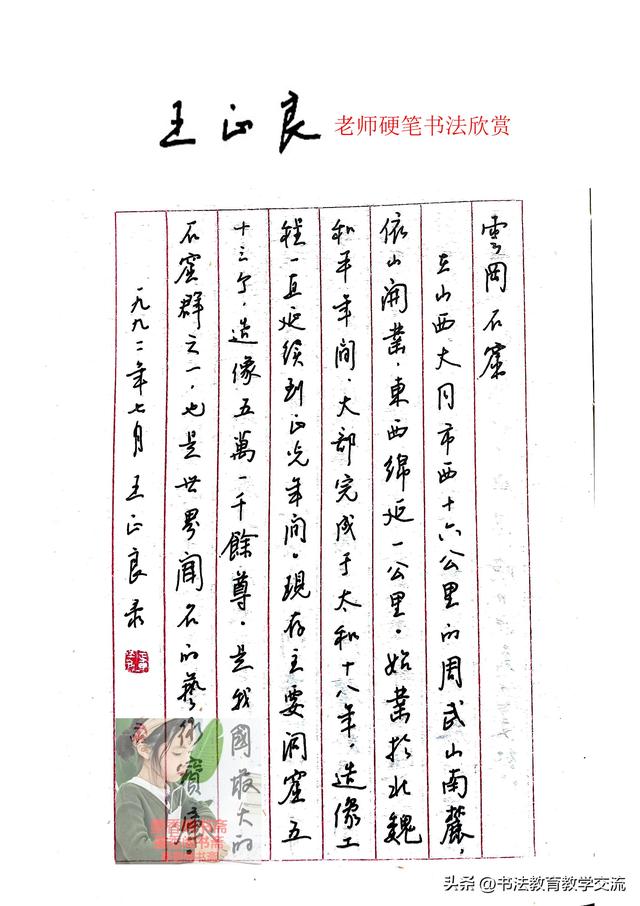 王正良 老师硬笔书法欣赏
雲岡石窟
在山西大同市西十六公里的周武山南麓，
依山開業，東西綿延一公里。始業於北魏
和平年間，大部完成于太和十八年，造像工
程一直延续到正光年間。現存主要洞窟五
十三个，造像五萬一千餘尊，是我國最大的
石窟群之一，也是世界闻名的藝術寶庫。
一九九二年七月 王正良录
头条 @书法教育教学交流